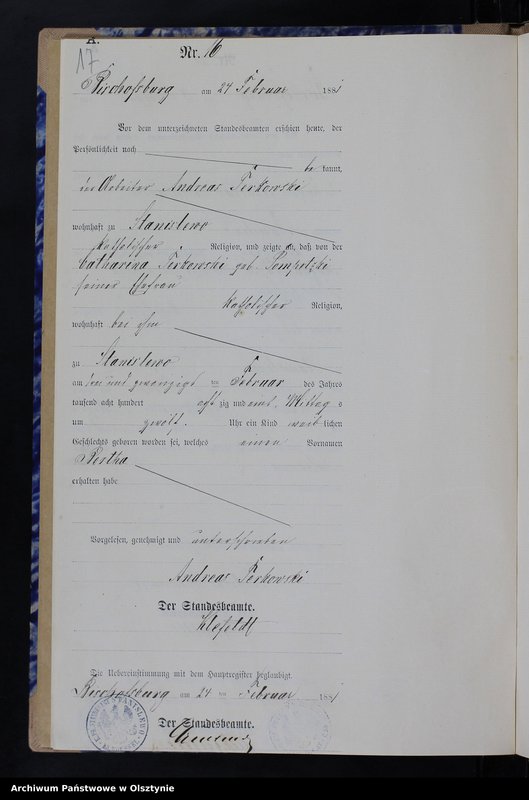 A.
17
Nr. 16
Bischofsburg am 24 Februar 1881
Vor dem unterzeichneten Standesbeamten erschien heute, der
Persönlichkeit nach
be kannt,
der Arbeiter Andreas Terkowski
wohnhaft zu Stanislewo
katholischer Religion, und zeigte an, daß von der
Catharina Terkowski geb.
seiner Ehefrau
katholischer Religion,
wohnhaft bei ihm
zu Stanislewo
am drei und zwanzigt ten Februar des Jahres
tausend acht hundert acht zig und eins, Mittag s
um zwölf Uhr ein Kind weib lichen
Geschlechts geboren worden sei, welches einen Vornamen
Bertha
erhalten habe
Vorgelesen, genehmigt und unterschrieben
Andreas Terkowski
Der Standesbeamte.
Klefeldt
Die Uebereinstimmung mit dem Hauptregister beglaubigt.
Bischofsburg am 24 ten Februar 1881
Der Standesbeamte.
STANISLEWO
Archiwum Państwowe w Olsztynie